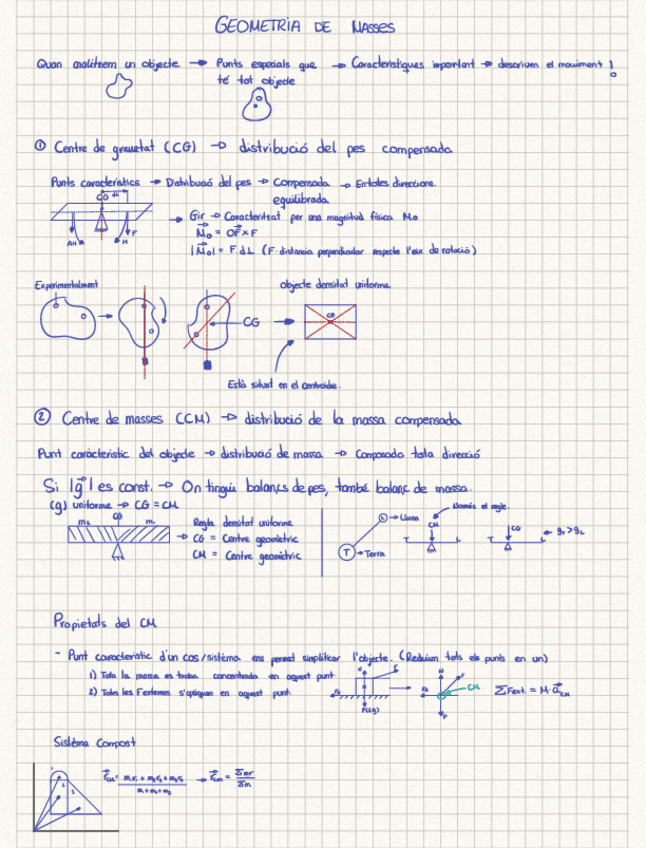 GEOMETRIA DE MASSES
Quan analitzem un objecte → Punts especials que → Característiques important → descriuen el moviment !
té tot objecte
① Centre de gravetat (CG) → distribució del pes compensada
Punts característics → Distribució del pes → Compensada → En totes direccions.
equilibrada
CG
Gir → Caracteritzat per una magnitud física Mo
Mo = OF x F
|Mo| = F.d⊥ (F.distancia perpendicular respecte l'eix de rotació)
F
Experimentalment
objecte densitat uniforme
CG
CG
Està situat en el centroide.
② Centre de masses (CM) → distribució de la massa compensada
Punt caràcteristic del objecte → distribució de massa → Composada tota direcció
Si |g| es const. → On tingui balanç de pes, també balanç de massa.
(g) uniforme → CG = CM
CG
m₂ m₁
Regla densitat uniforme
CG = Centre geomètric
CM = Centre geomètric
L → Lluna
T → Terra
Només el regle.
CM
T L
CG
T L
← g_T > g_L
Propietats del CM
- Punt característic d'un cos/sistèma ens permet simplificar l'objecte. (Reduim tots els punts en un)
1) Tota la massa es troba concentrada en aquest punt
2) Totes les F externes s'apliquen en aquest punt
F
P(cg)
CM
P
ΣF ext. = M·a_CM
Sistèma Compost
r_CM = m₁r₁ + m₂r₂ + m₃r₃ / m₁+m₂+m₃ → r_CM = Σmr / Σm